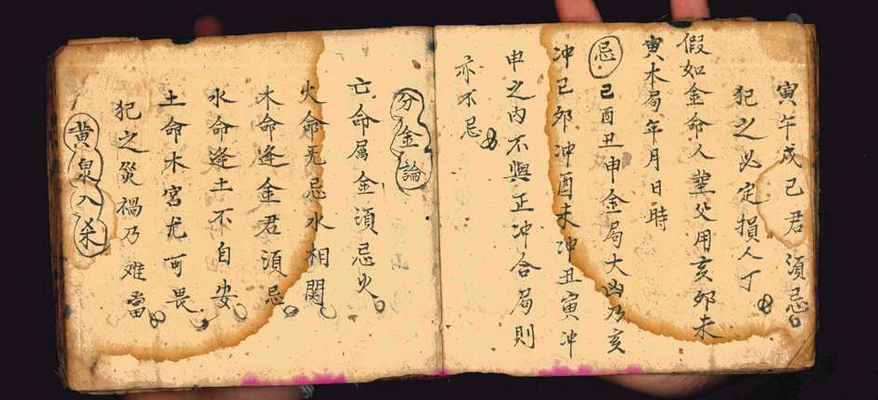 寅午戌己君須忌
犯之必定損人丁
假如金命人葬父用亥卯未
寅木局年月日時
忌己酉丑申金局大凶乃亥
冲己卯冲酉未冲丑寅冲
申之内不與正冲合局則
亦不忌
分金論
亡命属金須忌火
火命无忌水相関
木命逢金君須忌
水命逢土不自安
土命木宮尤可畏
犯之災禍乃难當
黄泉入杀